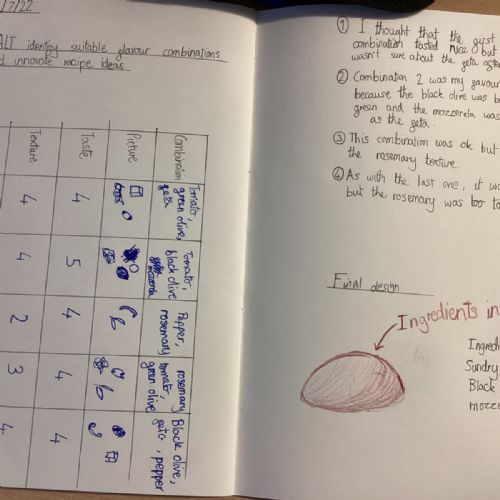 /7/22
ALT identify suitable flavour combinations
d innovate recipe ideas.
Combination
Tomato, green olive, feta
Tomato, black olive mozerela
Pepper, rosemary
rosemary tomato, green olive
Black olive, feta, pepper
Picture
Taste
4
5
4
4
4
Texture
4
4
2
3
4
① I thought that the first
combination tasted nice but
wasn't sure about the feta
② Combination 2 was my favour
because the black olive was
green and the mozzerela was
as the feta.
③ This combination was ok but
the rosemary texture.
④ As with the last one, it
but the rosemary was too
Final design
Ingredients in
Ingredi
Sundry
Black
mozze